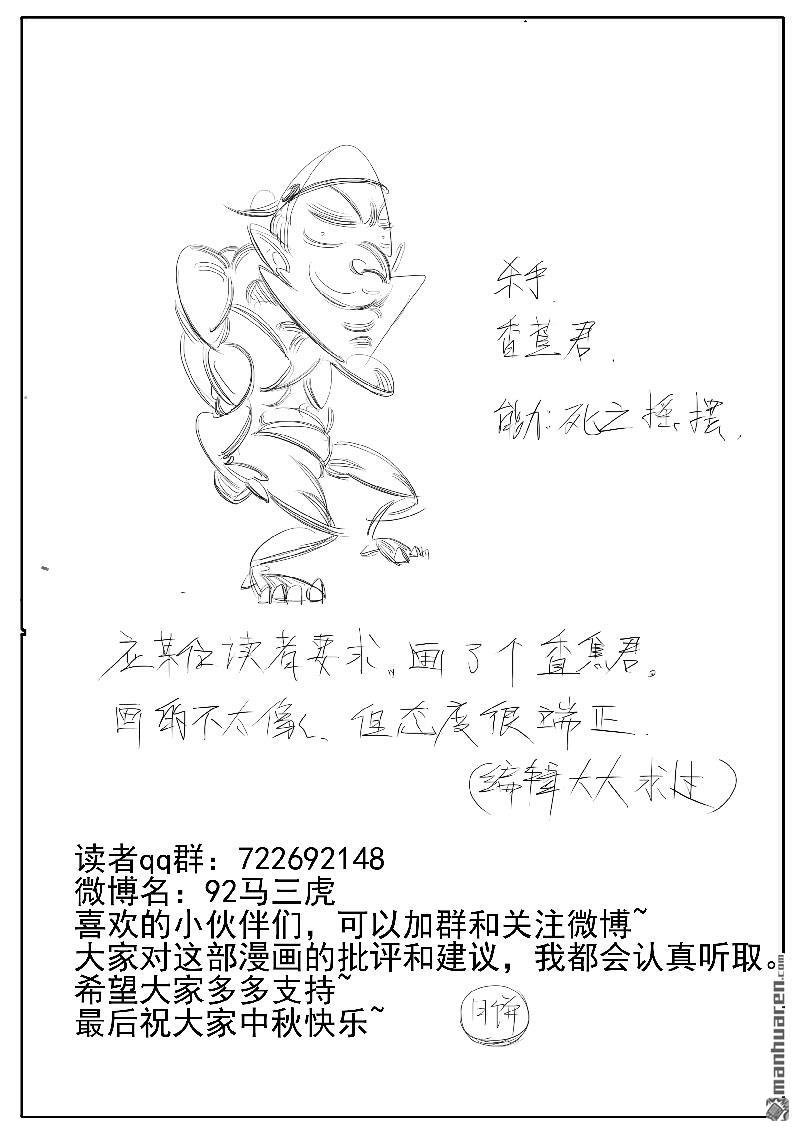 杀手.
香蕉君.
能力:死之摇摆.
应某位读者要求,画了个香蕉君。
画的不太像、但态度很端正.
(编辑大大求过)
读者qq群：722692148
微博名：92马三虎
喜欢的小伙伴们，可以加群和关注微博~
大家对这部漫画的批评和建议，我都会认真听取。
希望大家多多支持~
最后祝大家中秋快乐~
月饼
manhuar.en.com